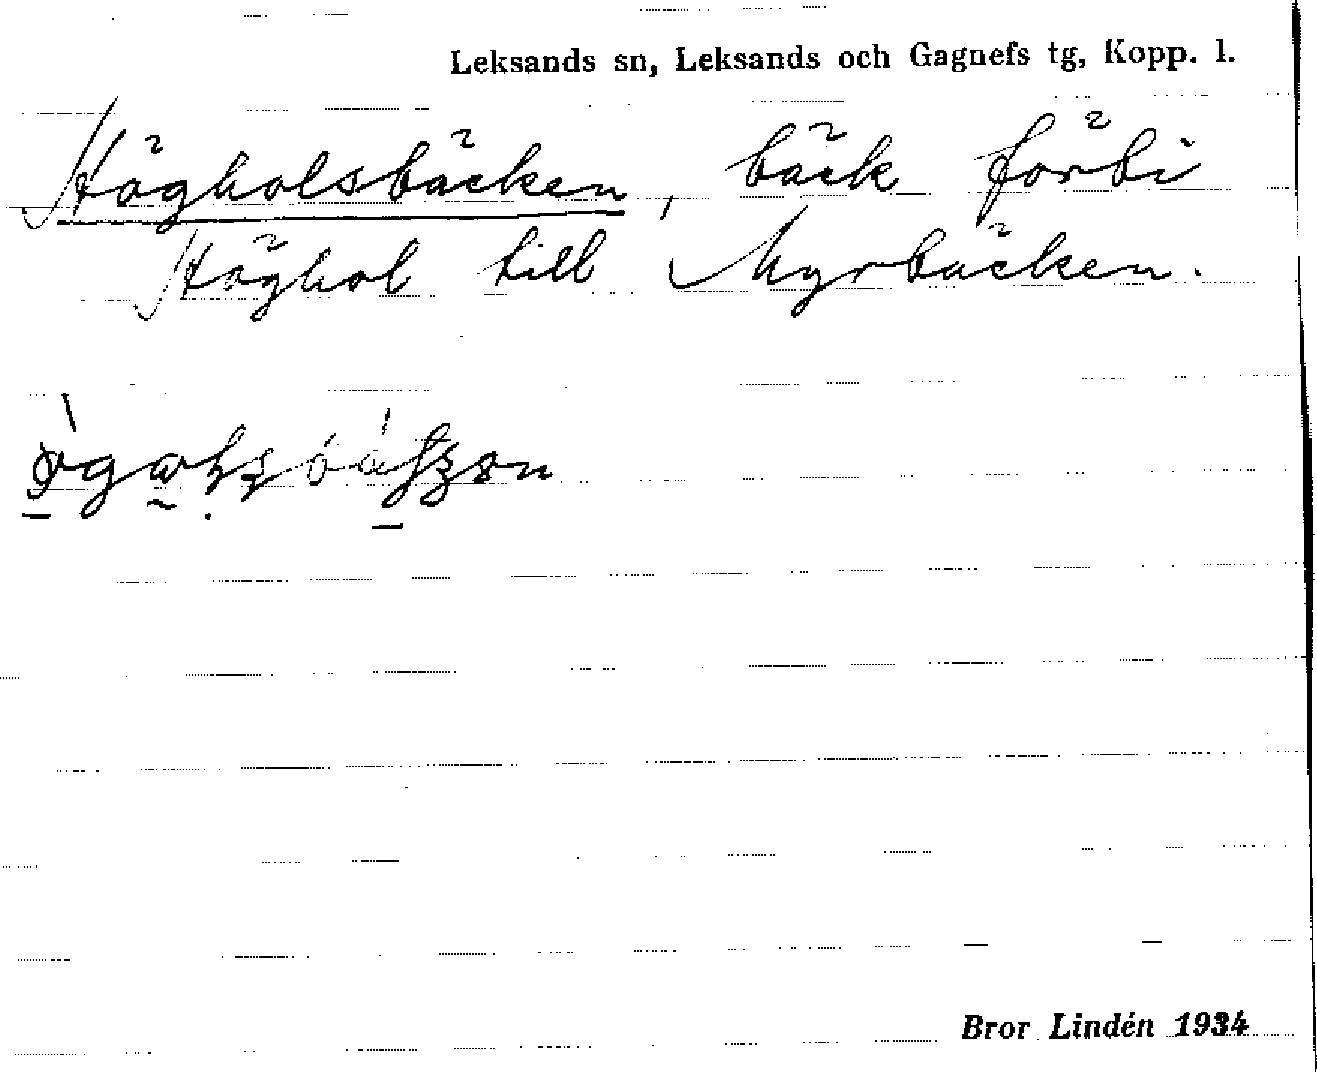 Leksands sn, Leksands och Gagnefs tg, Kopp. l.
Högholsbäcken, bäck förbi
Höghol till Myrbäcken.
Bror Lindén 1934